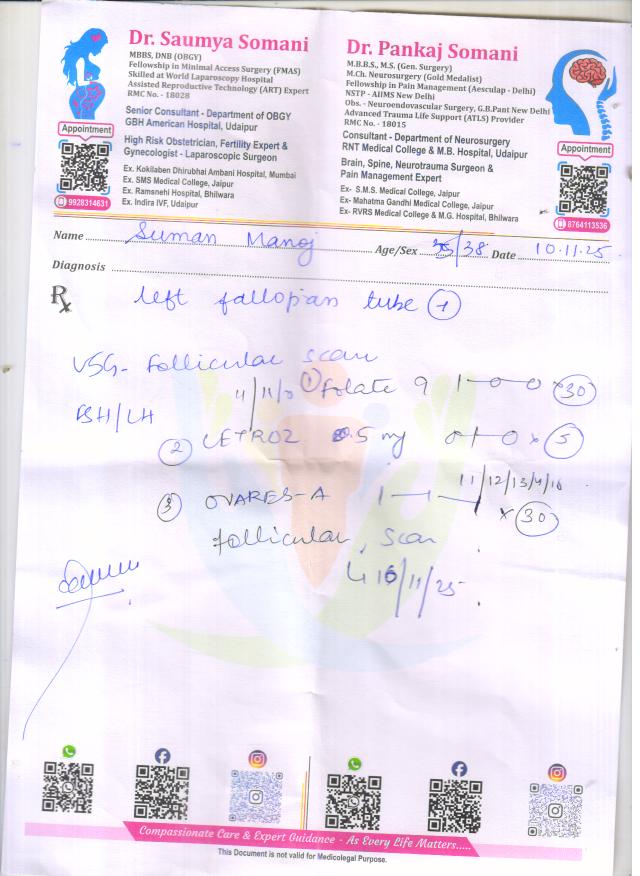 Dr. Saumya Somani
MBBS, DNB (OBGY)
Fellowship in Minimal Access Surgery (FMAS)
Skilled at World Laparoscopy Hospital
Assisted Reproductive Technology (ART) Expert
RMC No. - 18028
Senior Consultant - Department of OBGY
GBH American Hospital, Udaipur
High Risk Obstetrician, Fertility Expert &
Gynecologist - Laparoscopic Surgeon
Ex. Kokilaben Dhirubhai Ambani Hospital, Mumbai
Ex. SMS Medical College, Jaipur
Ex. Ramsnehi Hospital, Bhilwara
Ex. Indira IVF, Udaipur
Appointment
9928314631
Dr. Pankaj Somani
M.B.B.S., M.S. (Gen. Surgery)
M.Ch. Neurosurgery (Gold Medalist)
Fellowship in Pain Management (Aesculap - Delhi)
NSTP - AIIMS New Delhi
Obs. - Neuroendovascular Surgery, G.B.Pant New Delhi
Advanced Trauma Life Support (ATLS) Provider
RMC No. - 18015
Consultant - Department of Neurosurgery
RNT Medical College & M.B. Hospital, Udaipur
Brain, Spine, Neurotrauma Surgeon &
Pain Management Expert
Ex- S.M.S. Medical College, Jaipur
Ex- Mahatma Gandhi Medical College, Jaipur
Ex- RVRS Medical College & M.G. Hospital, Bhilwara
Appointment
8764113536
Name Suman Manoj Age/Sex /38 Date 10.11.25
Diagnosis
Rx left fallopian tube 1
USG- Follicular scan
1 folate 9 1-0-0 x 30
FSH/LH
2 LETROZ 5 mg x 5
11/12/13/14/
3 OVARES-A x 30
follicular scan
16/11/25
Compassionate Care & Expert Guidance - As Every Life Matters.....
This Document is not valid for Medicolegal Purpose.